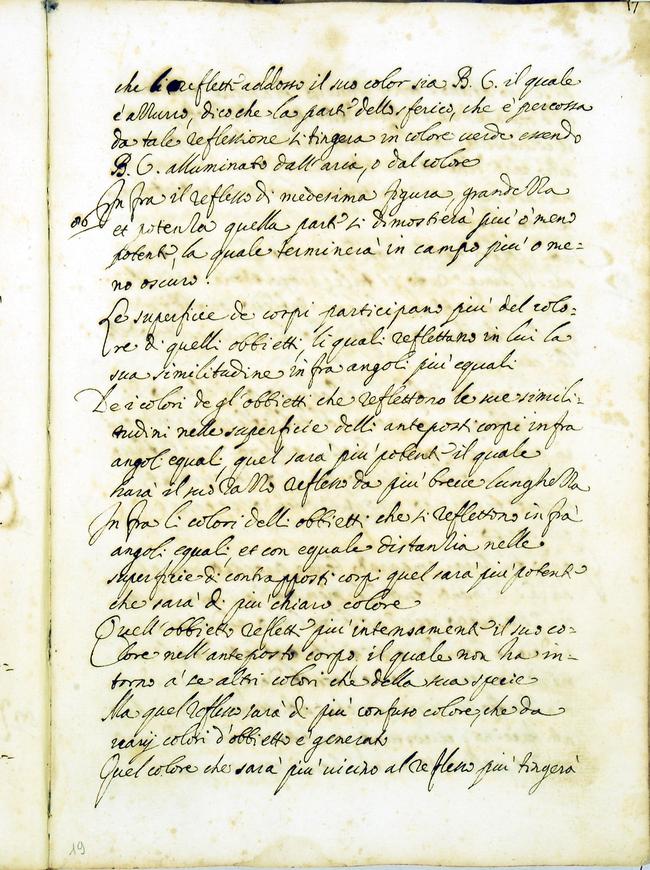 17
che li reflette addosso il suo color sia B. C. il quale
è azzurro, dico che la parte dello sferico, che e' percossa
da tale reflessione si tingera in colore verde essendo
B. C. alluminato dall'aria, o dal colore
86 In fra il reflesso di medesima figura grandezza
et potenza quella parte si dimosterà piu' o meno
potente, la quale terminerà in campo piu' o me=
no oscuro.
Le superficie de corpi participano piu' del colo=
re di quelli obbietti li quali reflettano in lui la
sua similitudine infra angoli piu equali
De i colori de gl'obbietti che reflettono le sue simili=
tudini nelle superficie delli anteposti corpi infra
angoli equali, quel sarà piu' potente il quale
harà il suo razzo reflesso da piu' breve lunghezza
In fra li colori delli obbietti che si reflettono infra
angoli equali et con equale distanzia nelle
superficie di contrapposti corpi quel sarà piu' potente
che sarà di piu' chiaro colore
Quell'obbietto reflette piu' intensamente il suo co=
lore nell'anteposto corpo il quale non ha in=
torno a' se altri colori che della sua specie
Ma quel reflesso sarà di piu' confuso colore, che da
varij colori d'obbietto e' generato
Quel colore che sarà piu' vicino al reflesso piu' tingerà
19